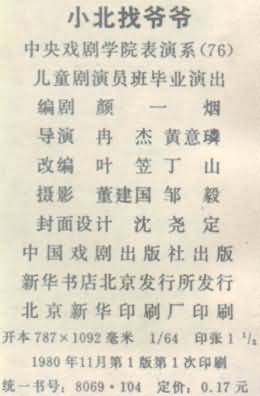 小北找爷爷
中央戏剧学院表演系(76)
儿童剧演员班毕业演出
编剧 颜一烟
导演 冉杰 黄意璘
改编 叶笠 丁山
摄影 董建国 邹毅
封面设计 沈尧定
中国戏剧出版社出版
新华书店北京发行所发行
北京新华印刷厂印刷
开本787×1092毫米 1/64 印张1 1/2
1980年11月第1版第1次印刷
统一书号：8069·104 定价：0.17元